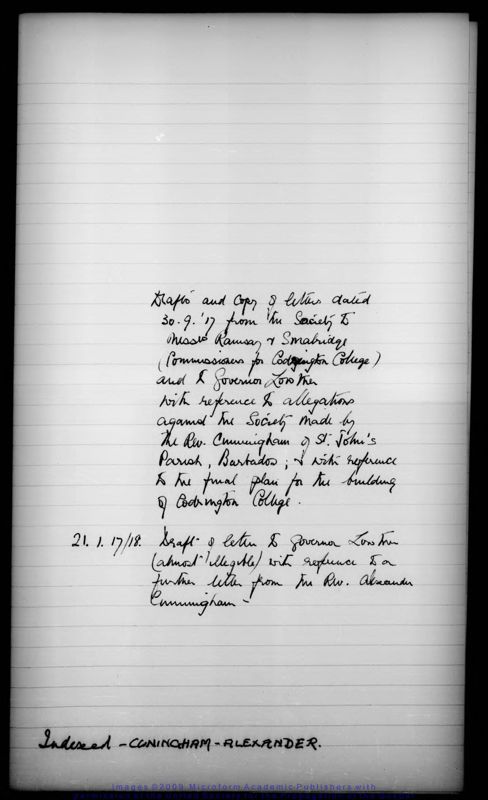 Drafts and Copy of letters dated
30.9.'17 from the Society to
Messrs Ramsay & Smalridge
(Commissioners for Codrington College)
and to Governor Lowther
with reference to allegations
against the Society made by
the Rev. Cunningham of St. John's
Parish, Barbados; & with reference
to the final plan for the building
of Codrington College.
21. 1. 17/18. Draft of letter to Governor Lowther
(almost illegible) with reference to a
further letter from the Rev. Alexander
Cunningham -
Indexed - CUNINGHAM - ALEXANDER.
Images ©2009 Microform Academic Publishers with